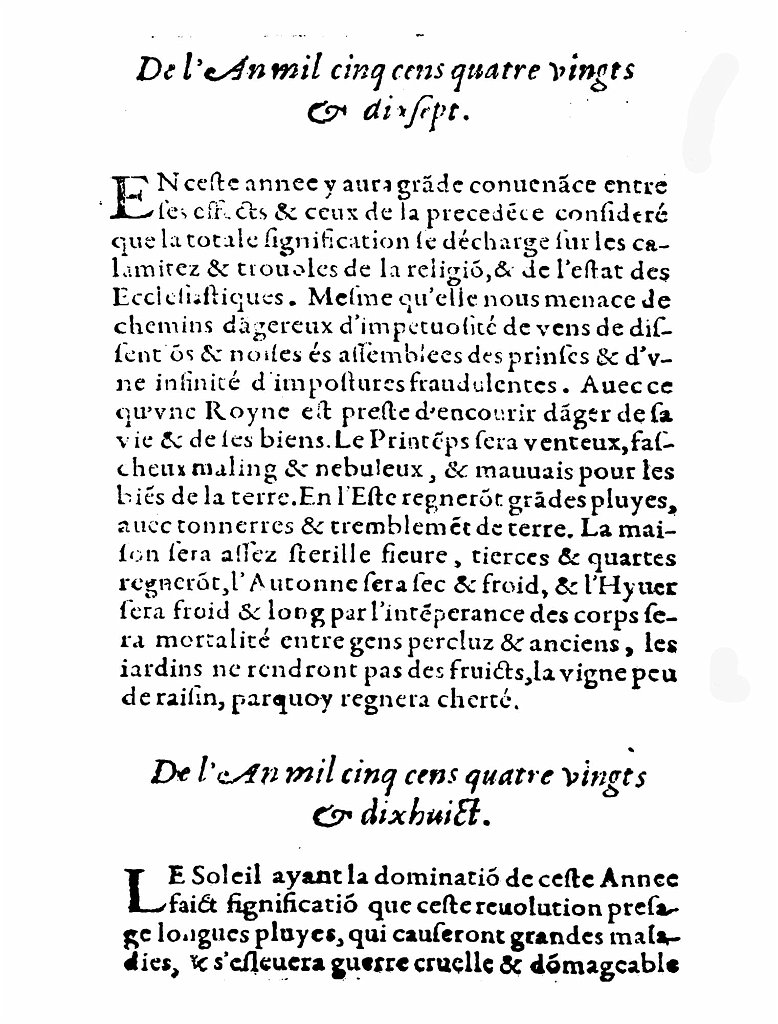 De l'An mil cinq cens quatre vingts
& dixſept.
EN ceſte annee y aura grãde conuenãce entre
ſes effects & ceux de la precedẽce conſideré
que la totale ſignification ſe décharge ſur les ca-
lamitez & troubles de la religiõ, & de l'eſtat des
Eccleſiaſtiques. Meſme qu'elle nous menace de
chemins dãgereux d'impetuoſité de vens de diſ-
ſentiõs & noiſes és aſſemblees des prinſes & d'v-
ne infinité d'impoſtures fraudulentes. Auec ce
qu'vne Royne eſt preſte d'encourir dãger de ſa
vie & de ſes biens. Le Printẽps ſera venteux, faſ-
cheux maling & nebuleux, & mauuais pour les
biẽs de la terre. En l'Eſte regnerõt grãdes pluyes,
auec tonnerres & tremblemẽt de terre. La mai-
ſon ſera aſſez ſterille fieure, tierces & quartes
regnerõt, l'Autonne ſera ſec & froid, & l'Hyuer
ſera froid & long par l'intẽperance des corps ſe-
ra mortalité entre gens percluz & anciens, les
iardins ne rendront pas des fruicts, la vigne peu
de raiſin, parquoy regnera cherté.
De l'An mil cinq cens quatre vingts
& dixhuict.
LE Soleil ayant la dominatiõ de ceſte Annee
faict ſignificatiõ que ceſte reuolution preſa-
ge longues pluyes, qui cauſeront grandes mala-
dies, & s'eſleuera guerre cruelle & dõmageable